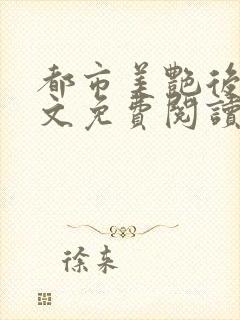 都市美艷後
文免費閱讀
徐来